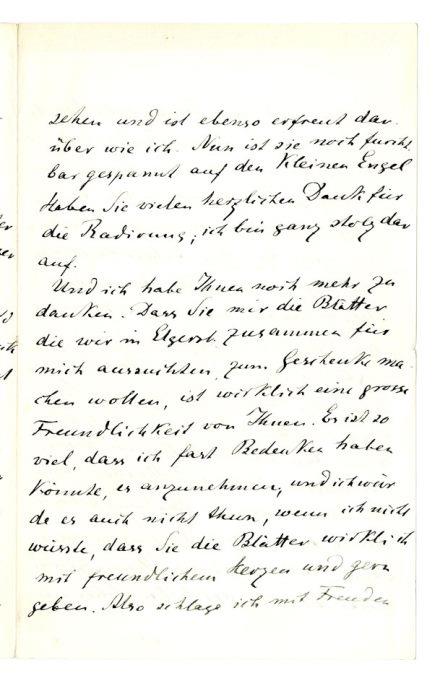 sehen und ist ebenso erfreut dar-
über wie ich. Nun ist sie noch furcht
bar gespannt auf den Kleinen Engel
Haben Sie vielen herzlichen Dank für
die Radirung; ich bin ganz stolz dar
auf.
Und ich habe Ihnen noch mehr zu
danken. Dass Sie mir die Blätter
die wir in Elgersb. zusammen für
mich aussuchten, zum Geschenke ma-
chen wollen, ist wirklich eine grosse
Freundlichkeit von Ihnen. Es ist so
viel, dass ich fast Bedenken haben
könnte, es anzunehmen, und ich wür
de es auch nicht thun, wenn ich nicht
wüsste, dass Sie die Blätter wirklich
mit freundlichem Herzen und gern
geben. Also schlage ich mit Freuden